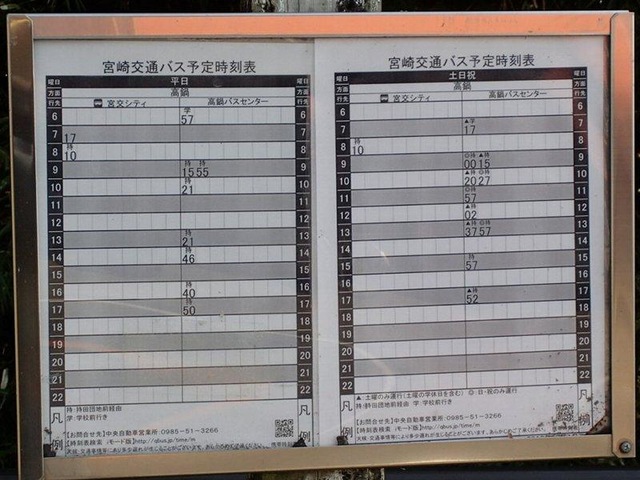 宮崎交通バス予定時刻表
曜日 平日 曜日
方面 高鍋 方面
行先 宮交シティ 高鍋バスセンター 行先
6 学57 6
7 17 7
8 持10 8
9 持15 持55 9
10 持21 10
11 11
12 12
13 持21 13
14 持46 14
15 15
16 持40 16
17 持50 17
18 18
19 19
20 20
21 21
22 22
凡例
持:持田団地前経由
学:学校前行き
【お問合せ先】中央自動車営業所:0985-51-3266
【時刻表検索 iモード版】http://qbus.jp/time/m
宮崎交通バス予定時刻表
曜日 土日祝 曜日
方面 高鍋 方面
行先 宮交シティ 高鍋バスセンター 行先
6 6
7 ▲学17 7
8 持10 8
9 ◎持00 ▲持15 9
10 ▲持20 ◎持27 10
11 ◎持57 11
12 ▲持02 12
13 ▲持37 ◎持57 13
14 14
15 持57 15
16 16
17 ▲持52 17
18 18
19 19
20 20
21 21
22 22
凡例
▲:土曜のみ運行(土曜の学休日を含む) ◎:日・祝のみ運行
持:持田団地前経由 学:学校前行き
【お問合せ先】中央自動車営業所:0985-51-3266
【時刻表検索 iモード版】http://qbus.jp/time/m